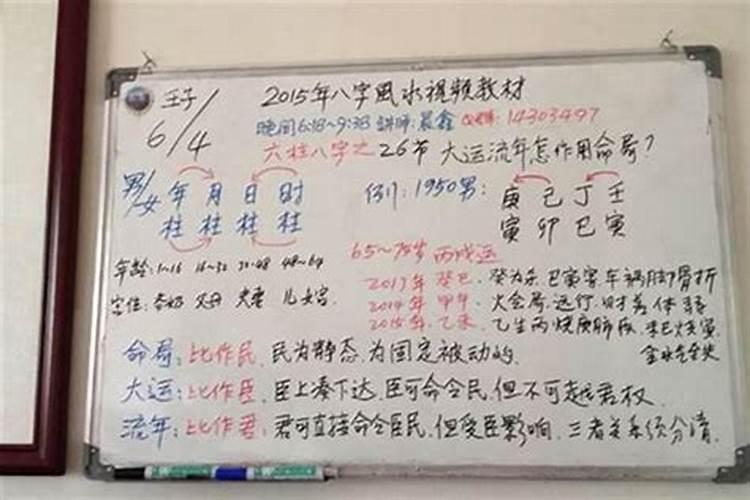 壬子
6/4
2015年八字風水視頻教材
晚间6:18~9:38 講师:晨鑫 14303497
六柱八字之26节 大运流年怎作用命局?
男/女 年 月 日 时
柱 柱 柱 柱
例:1950男:
庚 己 丁 壬
寅 卯 巳 寅
年龄:1~16 16~32 32~48 48~64
宫位: 父母 夫妻 儿女宫
65~75岁 丙戌运
癸巳. 癸为杀.巳寅害.车祸脚骨折
2014年 甲午. 火会局.远行.财差体弱
2015年.乙未. 乙生丙
命局:比作民. 民为静态.为固定被动的.
大运:比作臣. 臣上凑下达.臣可命令民.但不可越君权.
流年:比作君: 君可直接命令臣民.但受臣影响.三者关系须分清.